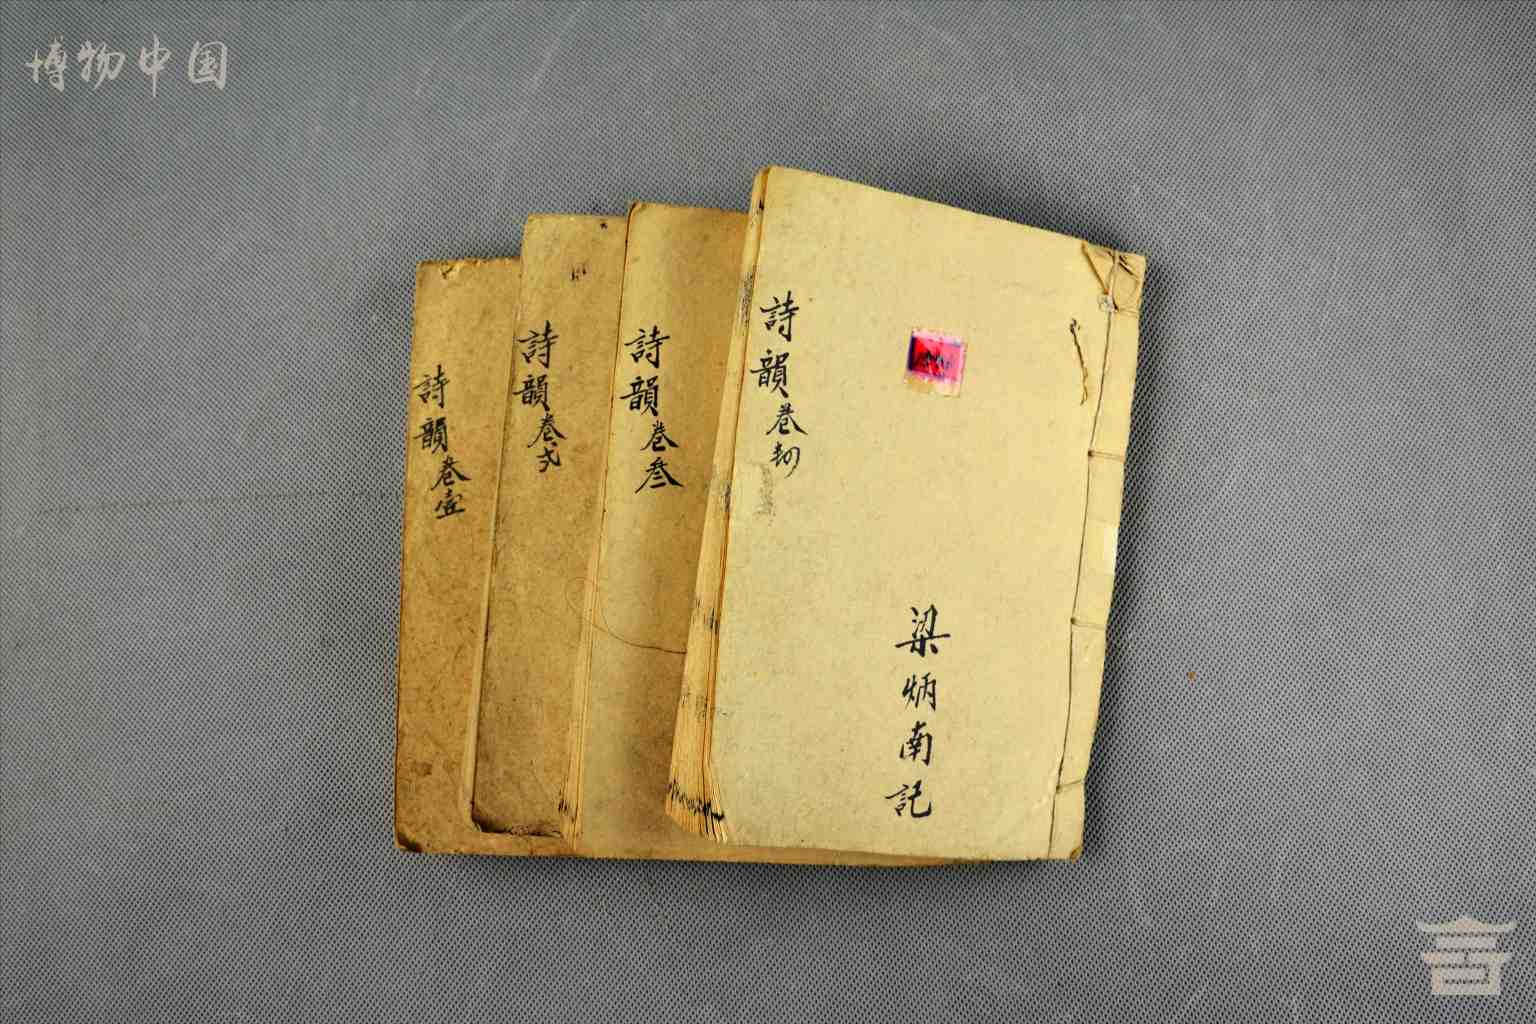 博物中国
詩韻卷壹
詩韻卷弍
詩韻卷叁
詩韻卷
梁炳南記